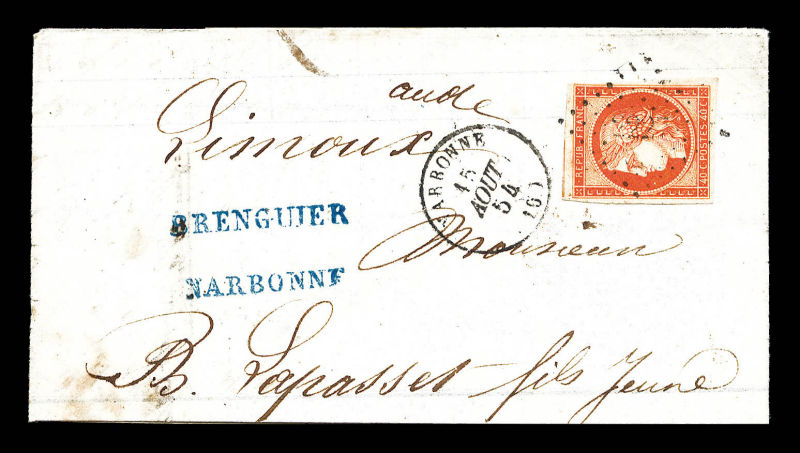 aude
Limoux
NARBONNE
15
AOUT
54
(10)
REPUB. FRANC.
40.C. POSTES. 40.C.
BRENGUIER
NARBONNE
Monsieur
B. Lapasset fils Jeune